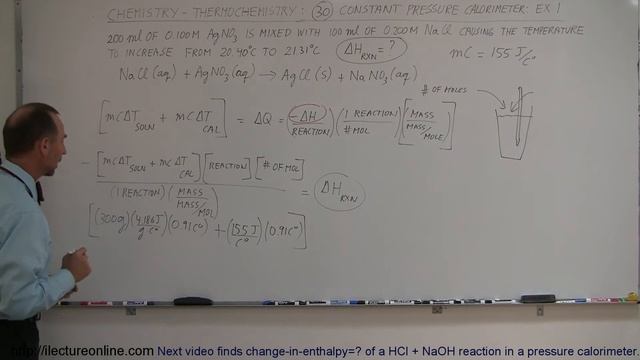 CHEMISTRY - THERMOCHEMISTRY: 30 CONSTANT PRESSURE CALORIMETER: EX 1
200 ml OF 0.100M AgNO3 IS MIXED WITH 100 ml OF 0.200M NaCl CAUSING THE TEMPERATURE
TO INCREASE FROM 20.40°C TO 21.31°C ΔH RXN = ?
mC = 155 J/C°
NaCl(aq) + AgNO3(aq) → AgCl(s) + NaNO3(aq)
# OF MOLES
[mCΔT SOLN + mCΔT CAL] = ΔQ = (-ΔH / REACTION) (1 REACTION / # MOL) [MASS / MASS/MOLE]
- [mCΔT SOLN + mCΔT CAL] [REACTION] [# OF MOL] / (1 REACTION) (MASS / MASS/MOL) = ΔH RXN
[(300g) (4.186J / g C°) (0.91C°) + (155J / C°) (0.91C°)]
http://ilectureonline.com Next video finds change-in-enthalpy=? of a HCl + NaOH reaction in a pressure calorimeter